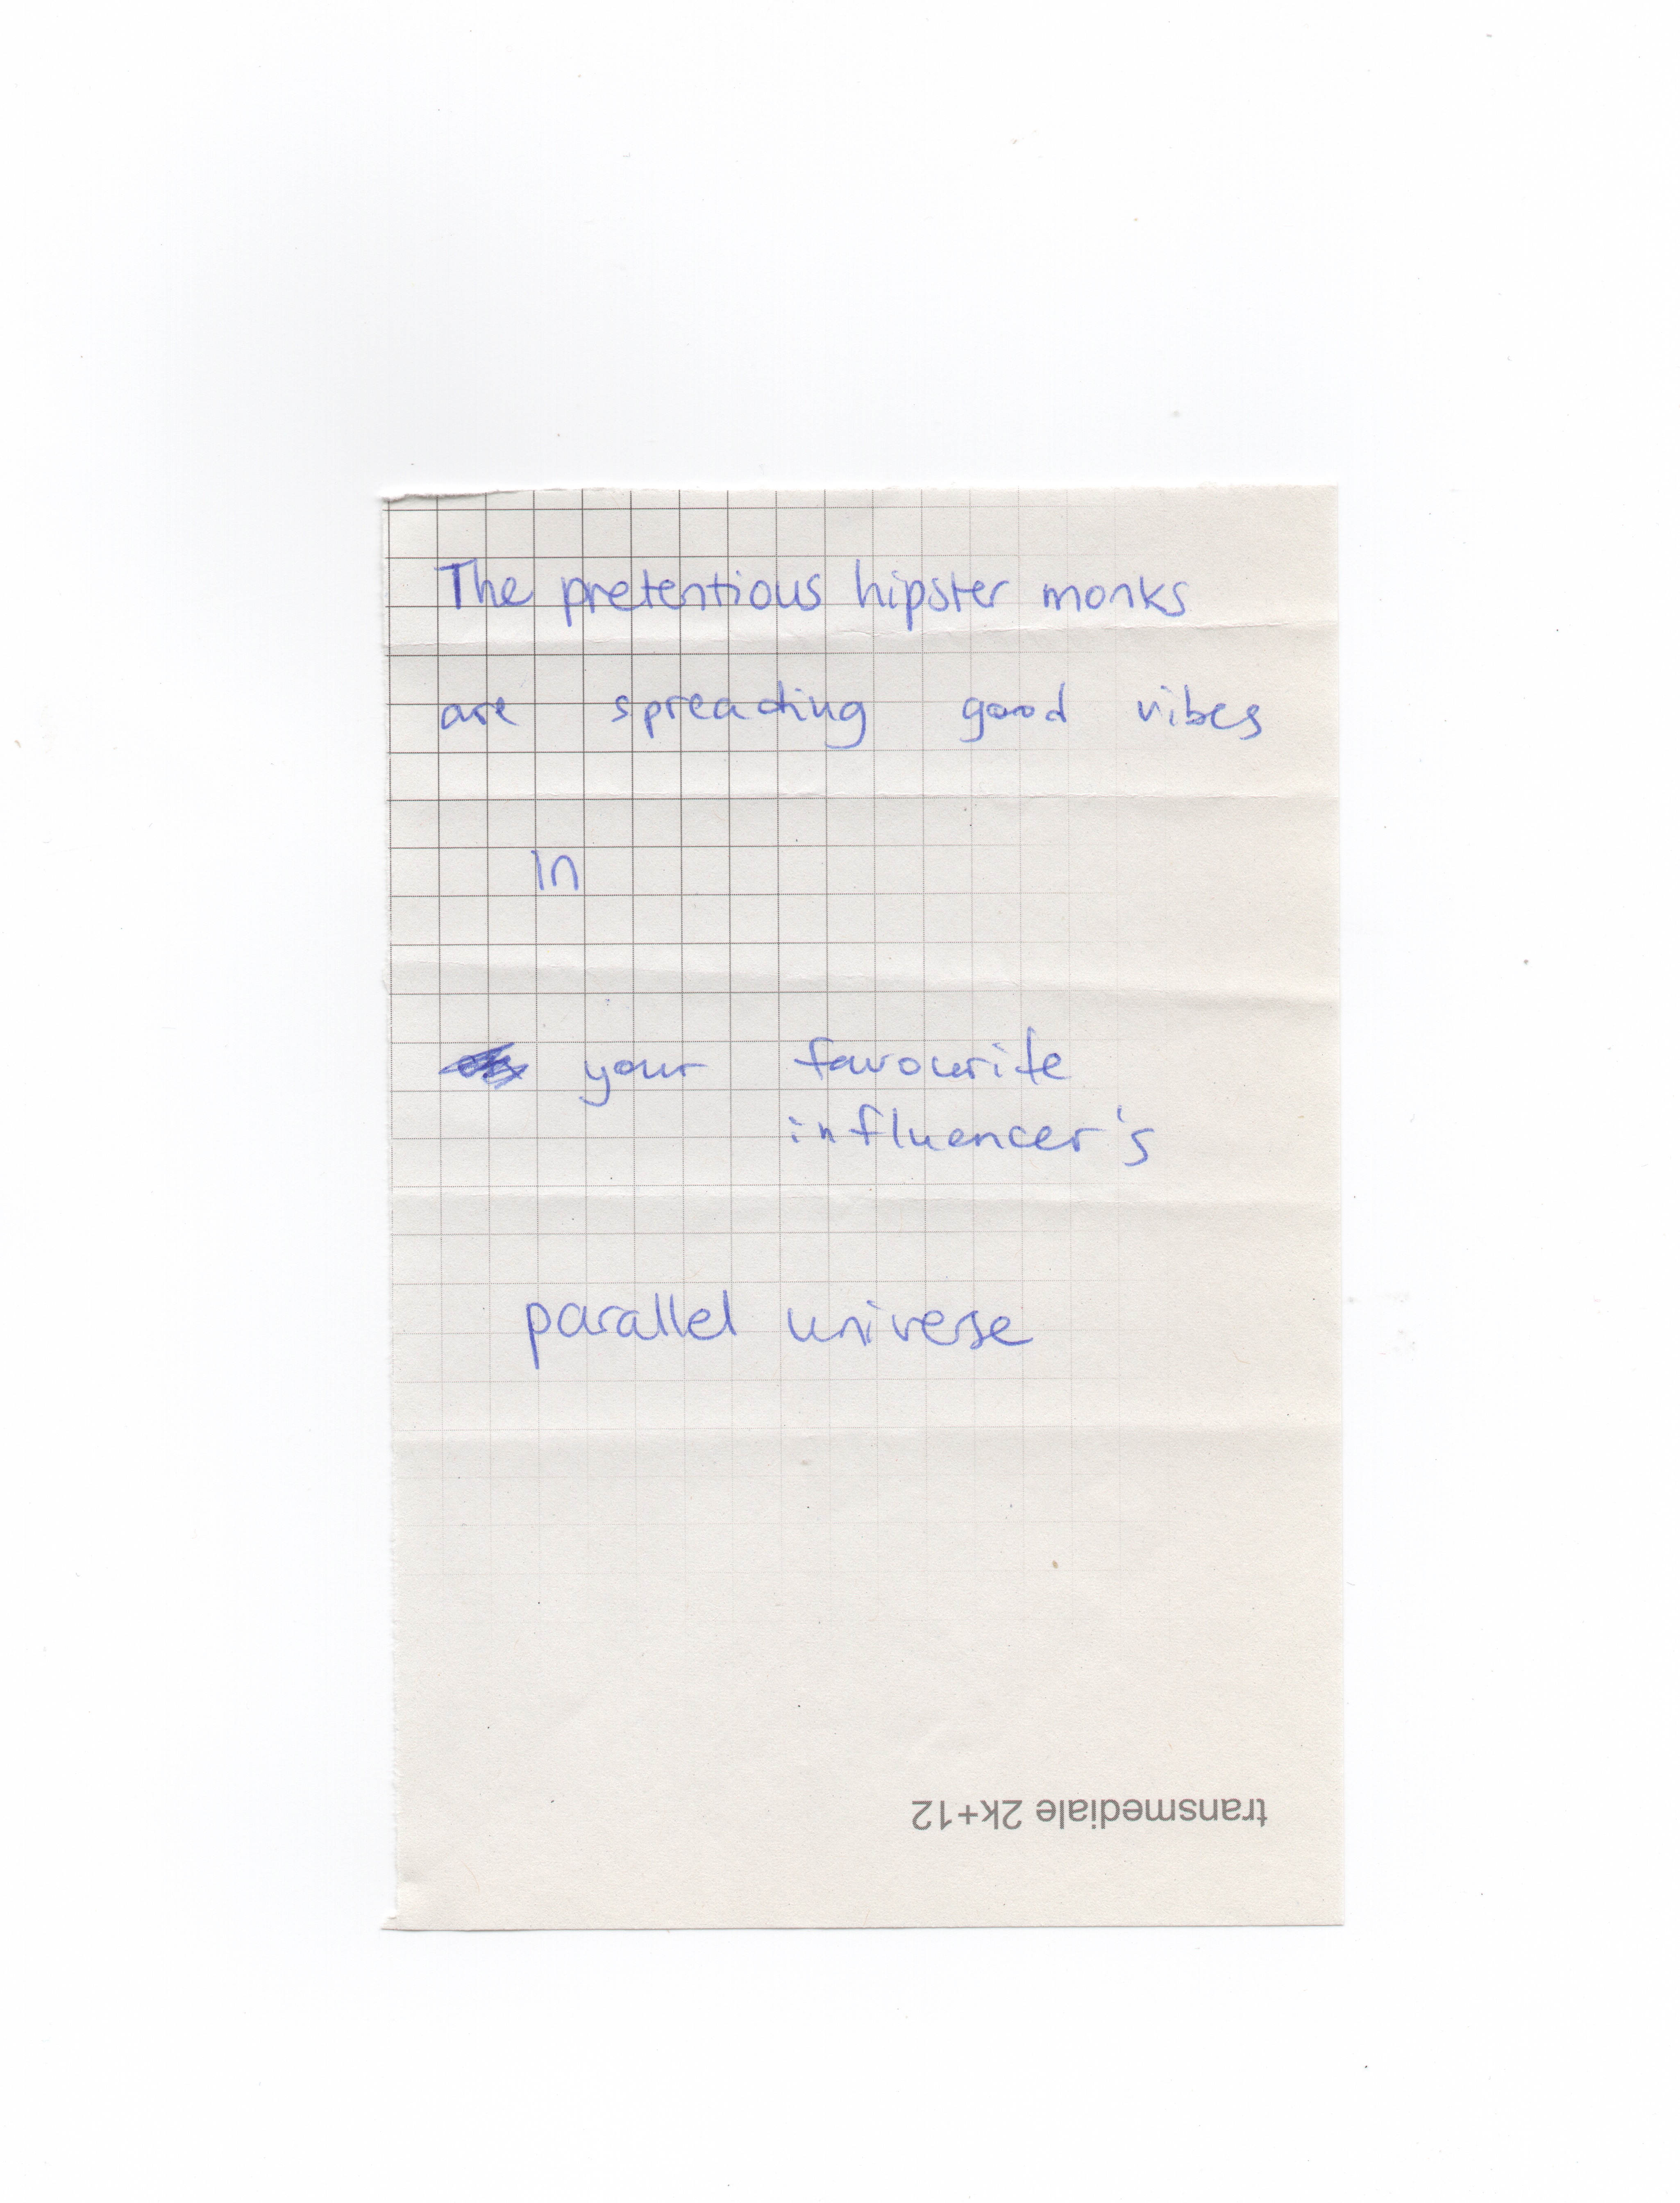 The pretentious hipster monks
are spreading good vibes
in
your favourite
influencer's
parallel universe
transmediale 2k+12